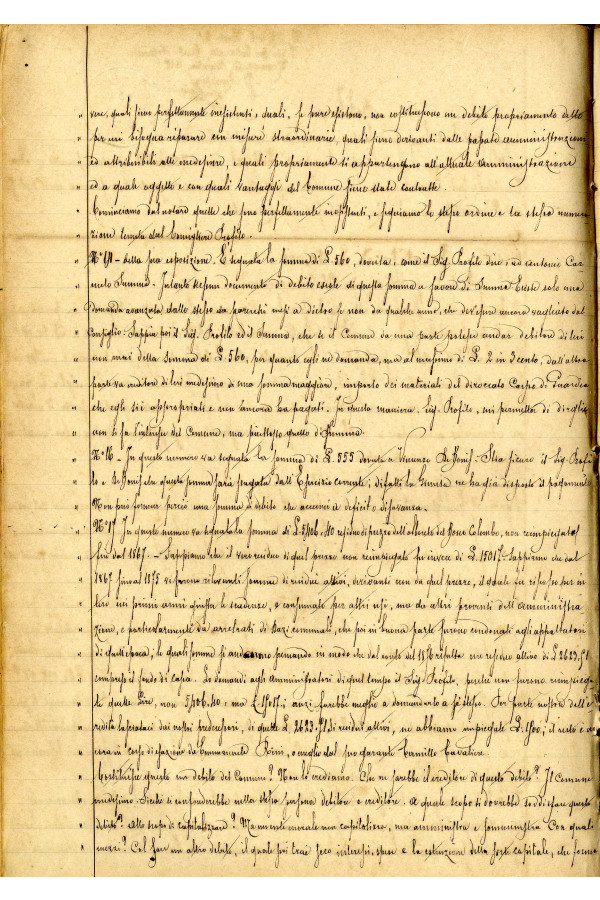 vere, quali sieno perfettamente inesistenti, quali, se pure esistono, non costituiscono un debito propriamente detto
per cui bisogna riparare con misure straordinarie, quali sieno derivanti dalle passate amministrazioni
ed attribuibili alle medesime, e quali propriamente si appartengono all'attuale amministrazione
ed a quale oggetto e con quali vantaggi del Comune siene state contratte.
Cominceremo dal notare quelle che sono perfettamente inesistenti, e seguiamo lo stesso ordine e la stessa numera
zione tenuta dal Consigliere Profilo.
della sua esposizione. È segnata la somma di £. 560, dovuta, come il Sig. Profilo dice, ad Antonio Car
melo Summa. Intanto nessun documento di debito esiste di questa somma a favore di Summa. Esiste solo una
domanda avanzata dallo stesso da parecchi mesi a dietro se non da qualche anno, che dev'essere ancora vagliata dal
Consiglio. Sappia poi il Sig. Profilo ed il Summa, che se il Comune da una parte potesse andar debitore di lui
non mai della somma di £. 560, per quanto egli ne domanda, ma al massimo di £. 2 in 3 cento, dall'altra
parte va creditore di lui medesimo di una somma maggiore, importo dei materiali del diroccato Corpo di Guardia
che egli si è appropriati e non ancora ha pagati. In questa maniera, Sig. Profilo, mi permetta di dirglielo
non si fa l'interesse del Comune, ma piuttosto quello di Summa.
N° 16 - In questo numero va segnata la somma di £. 555 dovuta a Vincenzo Stia sicuro il Sig. Profi
lo e che questa somma sarà pagata dall'Esercizio corrente; difatti la Giunta ne ha già disposto il pagamento.
Non può formar perciò una somma a debito che accenni a deficit o disavanzo.
N° 17 In questo numero va segnata la somma di £. 5906.40 residuo di prezzo dell'alberato del Bosco Colombo, non reimpiegato
fin dal 1867. - Sappiamo che il vero residuo di quel prezzo non reimpiegato fu invece di £. 15017. Sappiamo che dal
1867 fino al 1875 vi furono rilevanti somme di residui attivi, provenienti non da quel prezzo, il quale fu riscosso per in
tero nei primi anni giusta le scadenze, e consumato per altri usi, ma da altri proventi dell'amministra
zione, e particolarmente da arretrati di Dazi comunali, che poi in buona parte furono condonati agli appaltatori
di quell'epoca, le quali somme si andarono scemando in modo che dal conto del 1876 risulta un residuo attivo di £. 2623.71
compreso il fondo di cassa. Lo domandi agli Amministratori di quel tempo il Sig. Profilo, perchè non furono reimpiega
te quelle Lire, non 5906.40 ma £. 15017; anzi farebbe meglio a domandarlo a se stesso. Per parte nostra dell'e
redità lasciataci dai nostri predecessori, di quelle £. 2623.71 di residui attivi, ne abbiamo impiegate £. 1800; il resto è an
cora in corso di esazione da Emmanuele Rini, o meglio dal suo garante Camillo Cavaliere.
Costituisce questo un debito del Comune? Non lo crediamo. Chi ne sarebbe il creditore di questo debito? Il Comune
medesimo. Sicchè si confonderebbe nella stessa persona debitore e creditore. A quale scopo si dovrebbe soddisfare questo
debito? Allo scopo di capitalizzare? Ma un ente morale non capitalizza, ma amministra e somministra. Con quali
mezzi? Col fare un altro debito, il quale poi trae seco interessi, spese e la estinzione della sorte capitale, che